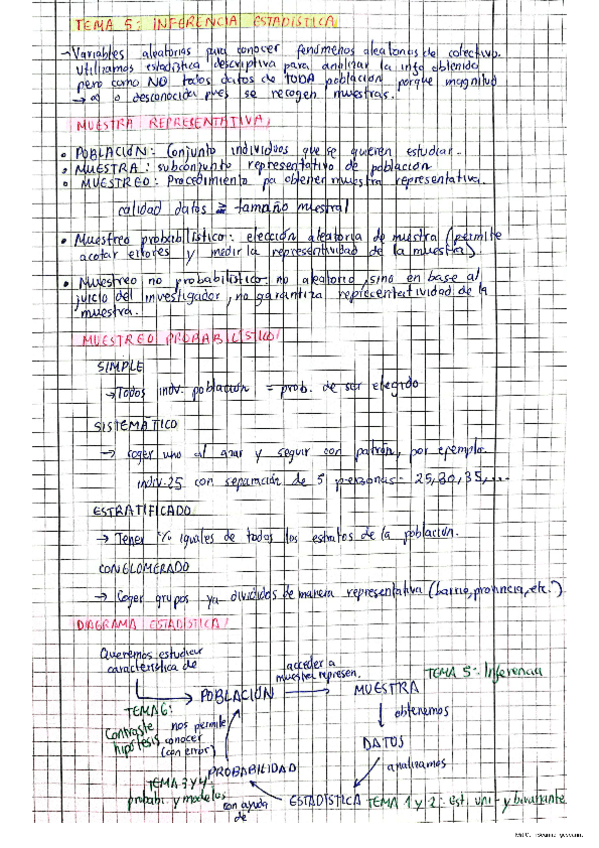 TEMA 5: INFERENCIA ESTADÍSTICA
→Variables aleatorias para conocer fenómenos aleatorios de colectivo.
Utilizamos estadística descriptiva para analizar la info obtenida
pero como NO todos datos de TODA población porque magnitud
→ ∞ o desconocida pues se recogen muestras.
MUESTRA REPRESENTATIVA
• POBLACIÓN: Conjunto individuos que se quieren estudiar.
• MUESTRA: subconjunto representativo de población
• MUESTREO: Procedimiento pa obtener muestra representativa.
calidad datos ≥ tamaño muestral
• Muestreo probabilístico: elección aleatoria de muestra (permite
acotar errores y medir la representividad de la muestra).
• Muestreo no probabilístico: no aleatorio, sino en base al
juicio del investigador, no garantiza representatividad de la
muestra.
MUESTREO PROBABILÍSTICO
SIMPLE
→Todos indv. población = prob. de ser elegido
SISTEMÁTICO
→ coger uno al azar y seguir con patrón, por ejemplo:
indv. 25 con separación de 5 personas: 25, 30, 35, ...
ESTRATIFICADO
→ Tener % iguales de todos los estratos de la población.
CONGLOMERADO
→ Coger grupos ya divididos de manera representativa (barrio, provincia, etc.)
DIAGRAMA ESTADÍSTICA
Queremos estudiar
característica de
POBLACIÓN
acceder a
muestra represen.
MUESTRA
TEMA 5: Inferencia
obtenemos
DATOS
analizamos
ESTADÍSTICA
TEMA 1 y 2: Est. uni- y bivariante
con ayuda
de
PROBABILIDAD
TEMA 3 y 4:
probabi. y modelos
nos permite
conocer
(con error)
TEMA 6:
Contraste
hipótesis